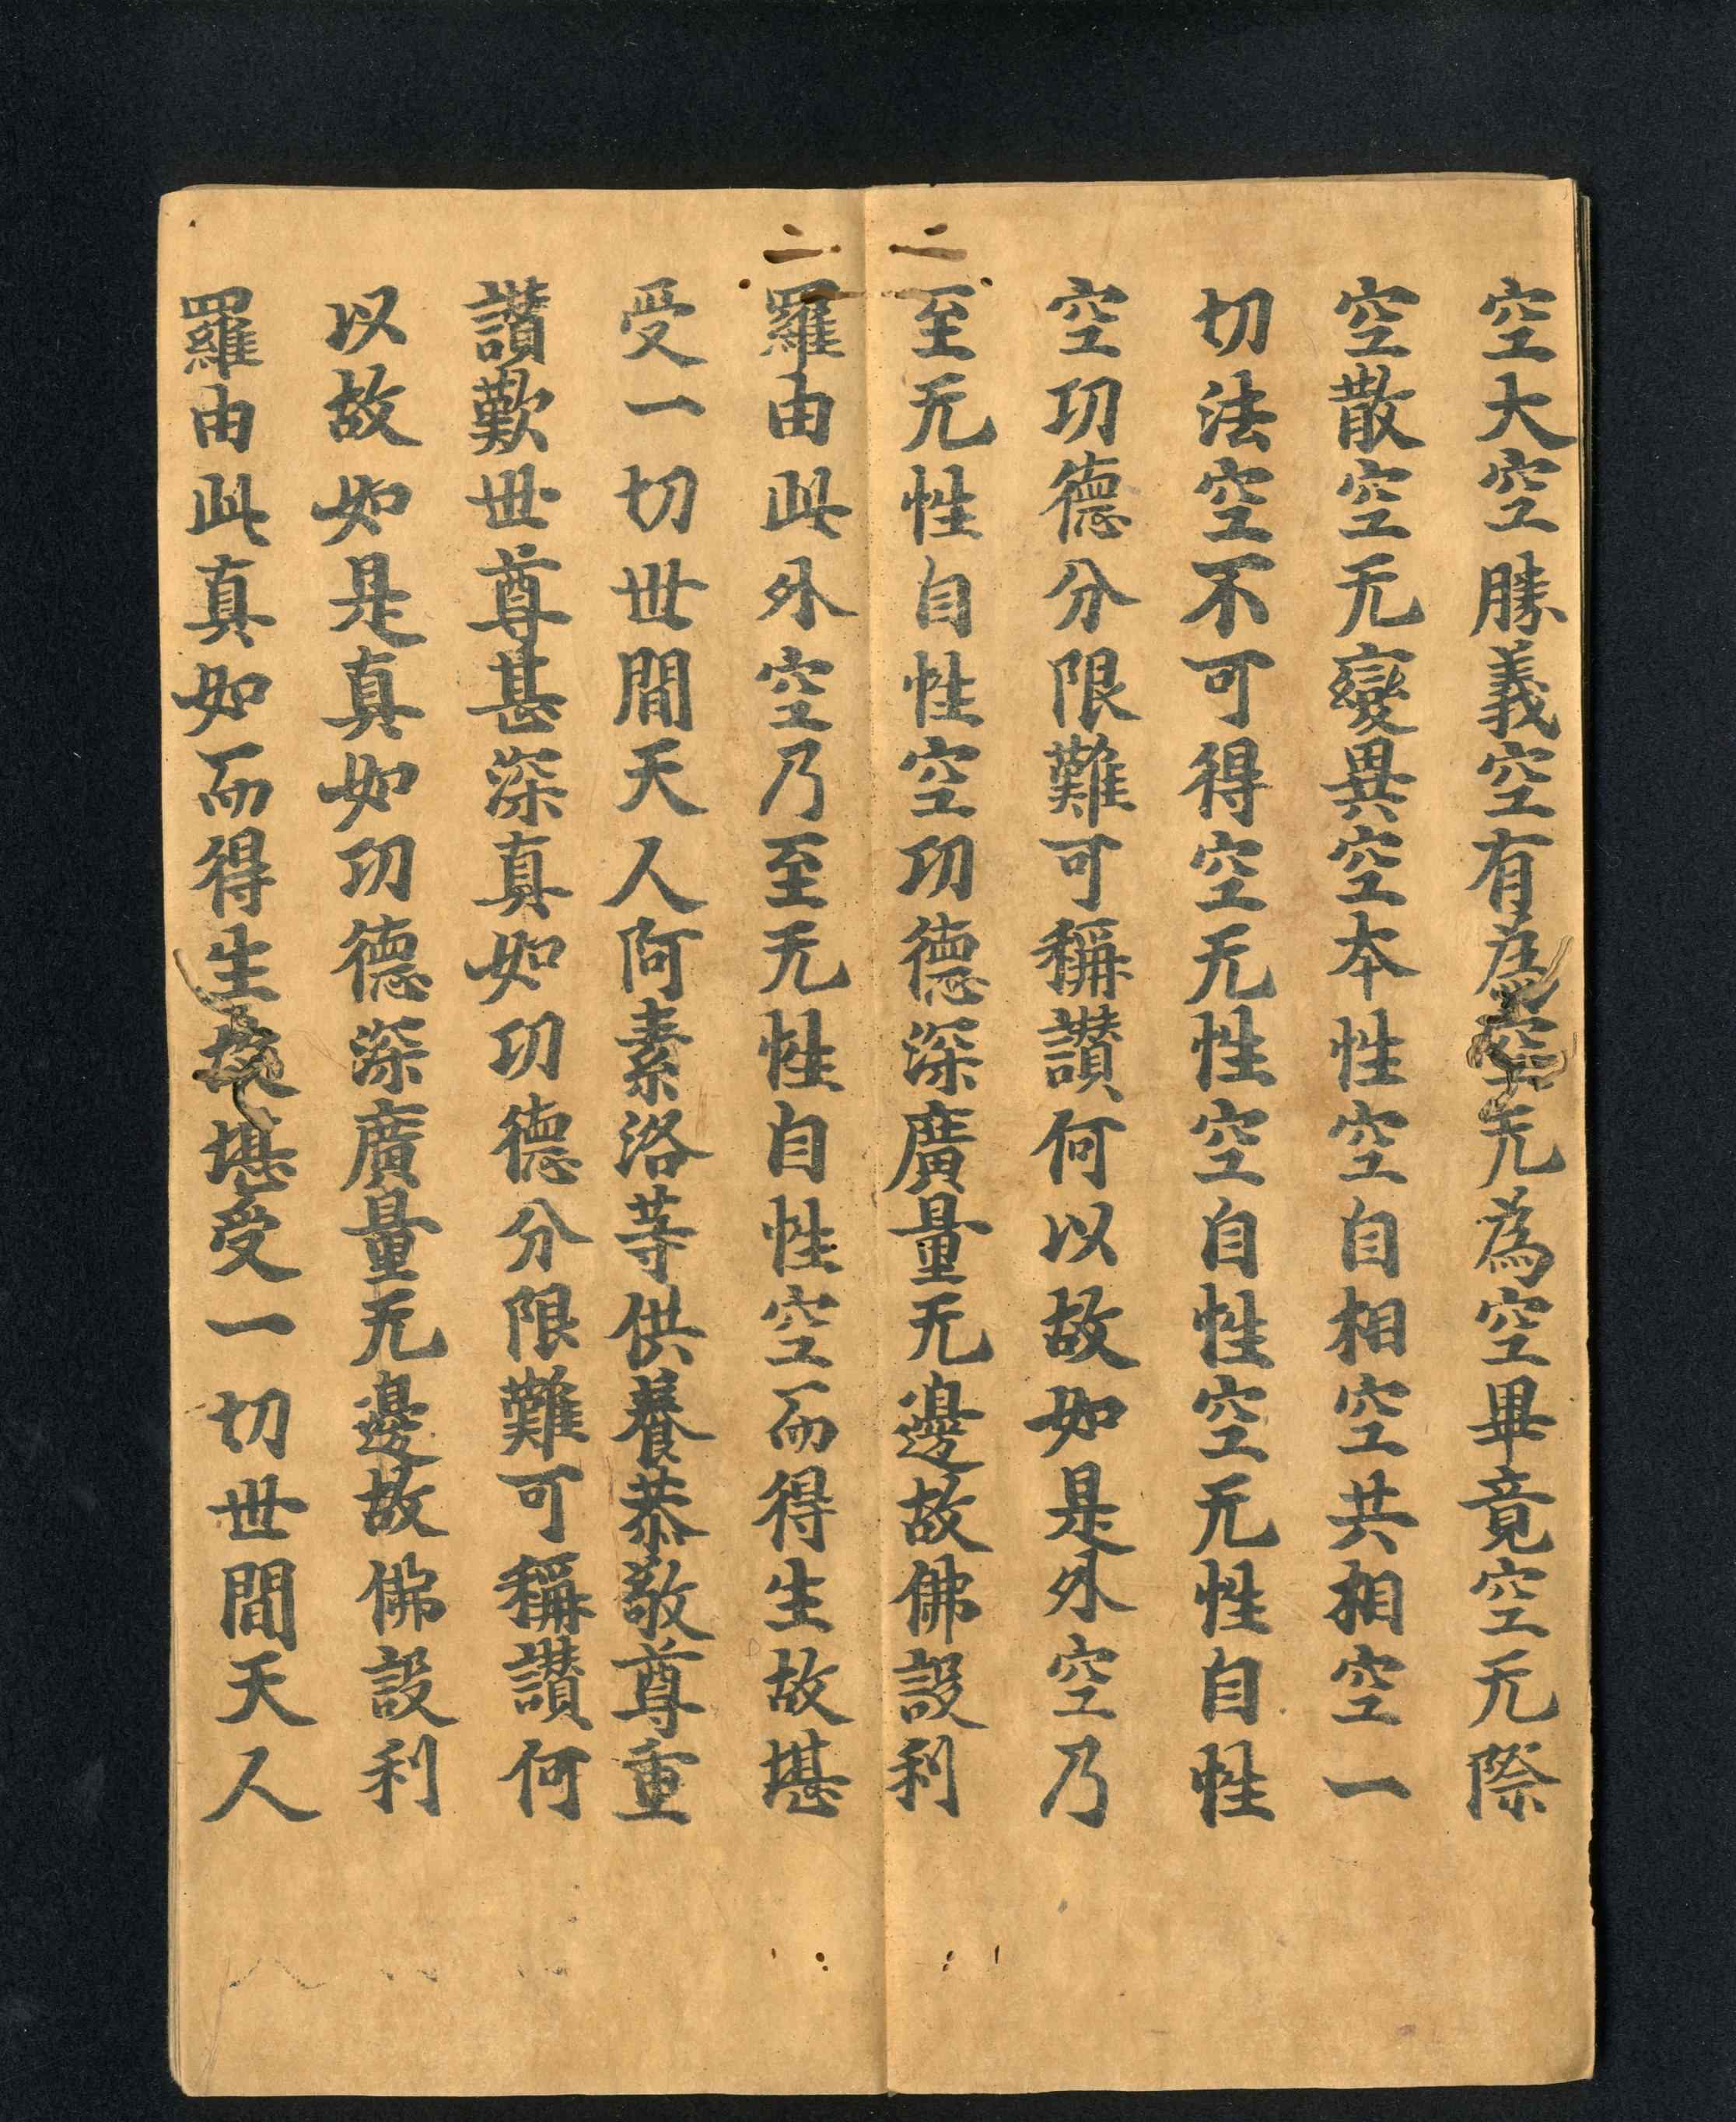 空大空勝義空有為空无為空畢竟空无際
空散空无變異空本性空自相空共相空一
切法空不可得空无性空自性空无性自性
空功德分限難可稱讃何以故如是外空乃
至无性自性空功德深廣量无邊故佛設利
羅由此外空乃至无性自性空而得生故堪
受一切世間天人阿素洛等供養恭敬尊重
讃歎世尊甚深真如功德分限難可稱讃何
以故如是真如功德深廣量无邊故佛設利
羅由此真如而得生故堪受一切世間天人